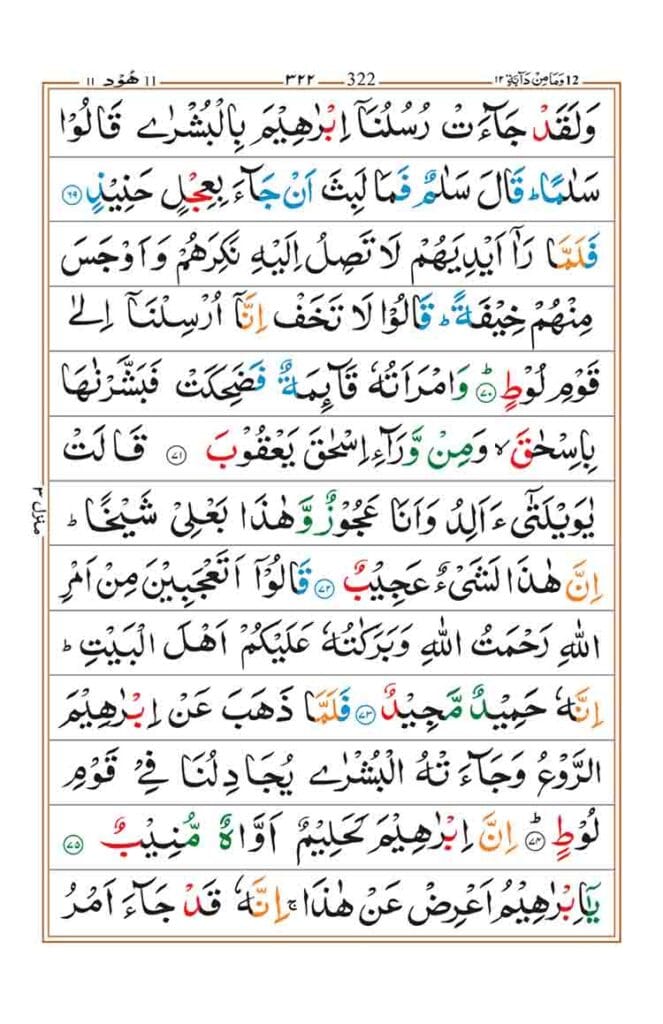 12 وَمَا مِنْ دَآبَّةٍ ١٢ 322 ٣٢٢ 11 هُوْد ١١
وَلَقَدْ جَآءَتْ رُسُلُنَاۤ اِبْرٰهِيْمَ بِالْبُشْرٰى قَالُوْا
سَلٰمًاؕ قَالَ سَلٰمٌ فَمَا لَبِثَ اَنْ جَآءَ بِعِجْلٍ حَنِيْذٍ ۶۹
فَلَمَّا رَاٰۤ اَيْدِيَهُمْ لَا تَصِلُ اِلَيْهِ نَكِرَهُمْ وَاَوْجَسَ
مِنْهُمْ خِيْفَةًؕ قَالُوْا لَا تَخَفْ اِنَّاۤ اُرْسِلْنَاۤ اِلٰى
قَوْمِ لُوْطٍؕ ۷۰ وَامْرَاَتُهٗ قَآئِمَةٌ فَضَحِكَتْ فَبَشَّرْنٰهَا
بِاِسْحٰقَۙ وَمِنْ وَّرَآءِ اِسْحٰقَ يَعْقُوْبَ ۷۱ قَالَتْ
يٰوَيْلَتٰٓى ءَاَلِدُ وَاَنَا عَجُوْزٌ وَّهٰذَا بَعْلِيْ شَيْخًاؕ
اِنَّ هٰذَا لَشَيْءٌ عَجِيْبٌ ۷۲ قَالُوْۤا اَتَعْجَبِيْنَ مِنْ اَمْرِ
اللّٰهِ رَحْمَتُ اللّٰهِ وَبَرَكٰتُهٗ عَلَيْكُمْ اَهْلَ الْبَيْتِؕ
اِنَّهٗ حَمِيْدٌ مَّجِيْدٌ ۷۳ فَلَمَّا ذَهَبَ عَنْ اِبْرٰهِيْمَ
الرَّوْعُ وَجَآءَتْهُ الْبُشْرٰى يُجَادِلُنَا فِيْ قَوْمِ
لُوْطٍؕ ۷۴ اِنَّ اِبْرٰهِيْمَ لَحَلِيْمٌ اَوَّاهٌ مُّنِيْبٌ ۷۵
يٰۤاِبْرٰهِيْمُ اَعْرِضْ عَنْ هٰذَاۚ اِنَّهٗ قَدْ جَآءَ اَمْرُ
منزل ٣